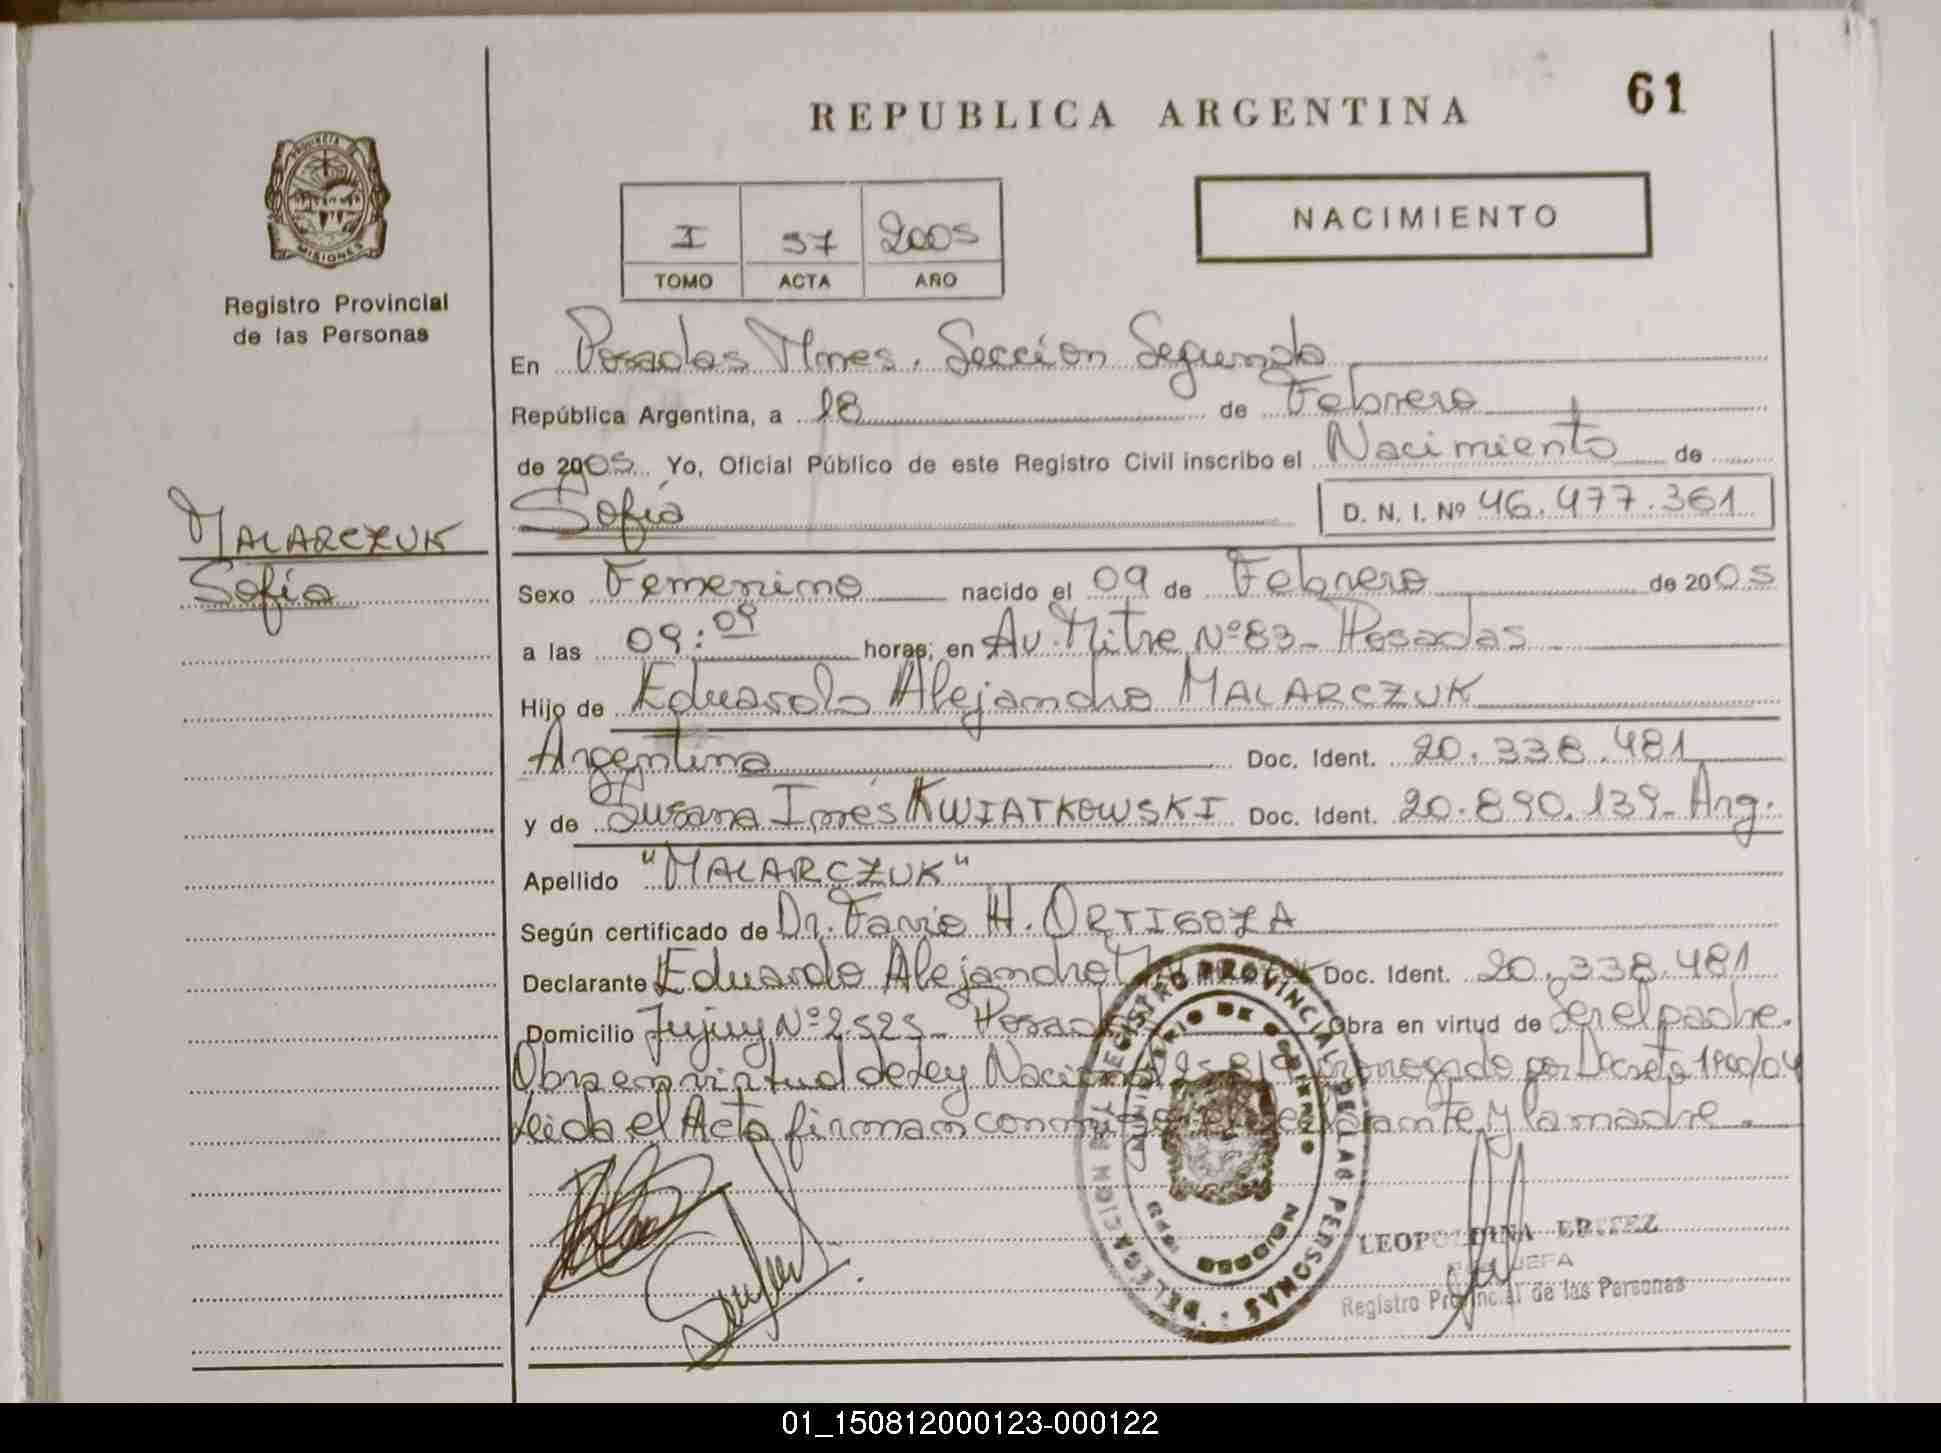 REPUBLICA ARGENTINA
61
PROVINCIA DE
MISIONES
Registro Provincial
de las Personas
I 57 2005
TOMO ACTA AÑO
NACIMIENTO
En Posadas Mnes. Sección Segunda
República Argentina, a 18 de Febrero
de 2005 Yo, Oficial Público de este Registro Civil inscribo el Nacimiento de
Sofía D. N. I. Nº 46.477.361
MALARCZUK
Sofía
Sexo Femenino nacido el 09 de Febrero de 2005
a las 09:09 horas; en Av. Mitre Nº 83- Posadas
Hijo de Eduardo Alejandro MALARCZUK
Argentina Doc. Ident. 20.338.481
y de Susana Inés KWIATKOWSKI Doc. Ident. 20.890.139- Arg.
Apellido "MALARCZUK"
Según certificado de Dr. Favio H. ORTIGOZA
Declarante Eduardo Alejandro Doc. Ident. 20.338.481
Domicilio Jujuy Nº 2525- Posadas Obra en virtud de Ser el padre.
Obra en virtud de Ley Nacional prorrogado por Decreto
Leida el Acta firman conmigo el declarante y la madre.
DELEGACION REGISTRO PROVINCIAL DE LAS PERSONAS
MINISTERIO DE GOBIERNO
LEOPOLDINA
JEFA
Registro Provincial de las Personas
01_150812000123-000122